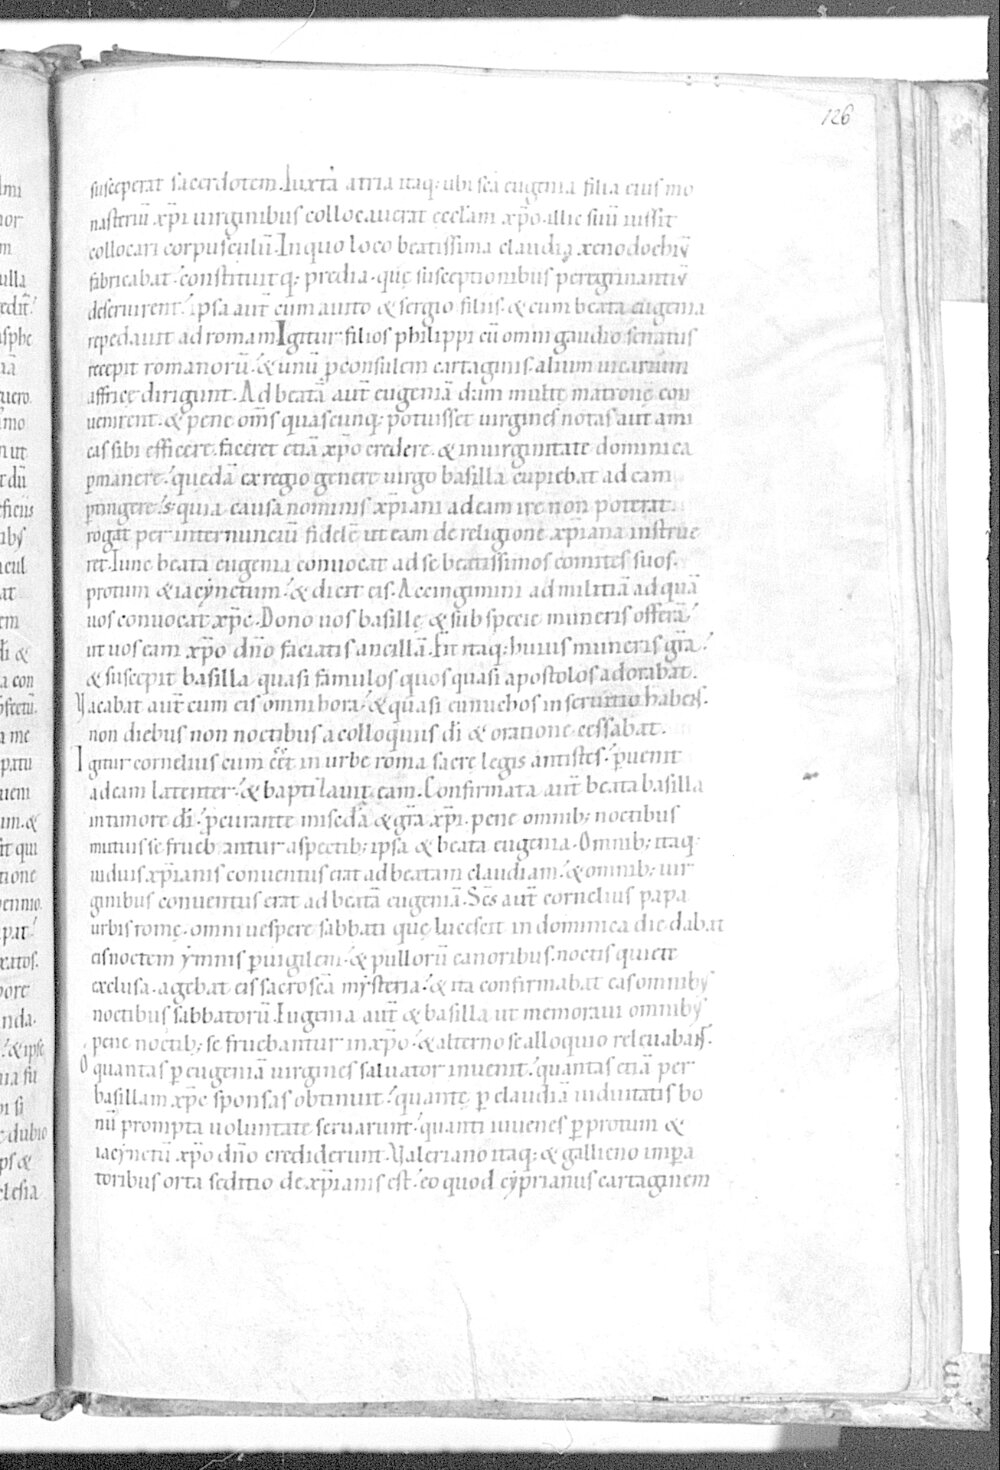 126
susceperat sacerdotem. Iuxta atria itaq; ubi sc̄a eugenia filia eius mo
nasteriū xp̄i uirginibus collocauerat eccl̄am xp̄o. illic suū iussit
collocari corpusculū. In quo loco beatissima claudia xenodochiū
fabricabat. constituitq; predia. quę susceptionibus peregrinantiū
deseruirent. ipsa aut̄ cum auito & sergio filiis. & cum beata eugenia
repedauit ad romam Igitur filios philippi cū omni gaudio senatus
recepit romanorū. & unū ꝓconsulem cartaginis. alium uicarium
affrice dirigunt. Ad beatā aut̄ eugeniā dum multe matronę con
uenirent. & pene om̄s quascunq; potuisset uirgines notas aut ami
cas sibi efficere. faceret etiā xp̄o credere. & in uirginitate dominica
ꝑmanere. quedā ex regio genere uirgo basilla cupiebat ad eam
ꝑtingere. s; quia causa nominis xp̄iani ad eam ire non poterat.
rogat per internunciū fidelē ut eam de religione xp̄iana instrue
ret. Tunc beata eugenia conuocat ad se beatissimos comites suos.
protum & iacynctum. & dicit eis. Accingimini ad militiā ad quā
uos conuocat xp̄c. Dono uos basillę & sub specie muneris offerā
ut uos eam xp̄o dn̄o faciatis ancillā. Fit itaq; huius muneris gr̄a.
& suscepit basilla quasi famulos quos quasi apostolos adorabat.
Vacabat aut̄ cum eis omni hora. & quasi eunuchos in seruitio habens.
non diebus non noctibus a colloquiis dī & oratione cessabat.
Igitur cornelius cum eēt in urbe roma sacre legis antistes. ꝑuenit
ad eam latenter. & baptizauit eam. Confirmata aut̄ beata basilla
in timore dī. ꝓcurante misedā & gr̄a xp̄i. pene omnib; noctibus
mutuis se fruebantur aspectib; ipsa & beata eugenia. Omnib; itaq;
uiduis xp̄ianis conuentus erat ad beatam claudiam. & omnib; uir
ginibus conuentus erat ad beatā eugeniā. Sc̄s aut̄ cornelius papa
urbis romę. omni uespere sabbati quę lucescit in dominica die dabat
eis noctem ymnis ꝑuigilem. & pullorū canoribus. noctis quiete
exclusa. agebat eis sacrosc̄a mysteria. & ita confirmabat eas omnibus
noctibus sabbatorū. Eugenia aut̄ & basilla ut memoraui omnibus
pene noctib; se fruebantur in xp̄o. & alterno se alloquio releuabans.
O quantas ꝑ eugeniā uirgines saluator inuenit. quantas etiā per
basillam xp̄c sponsas obtinuit. quante ꝑ claudiā uiduitatis bo
nū prompta uoluntate seruarunt. quanti iuuenes ꝑ protum &
iacynctū xp̄o dn̄o crediderunt. Valeriano itaq; & gallieno imꝑa
toribus orta seditio de xp̄ianis est. eo quod cyprianus cartaginem